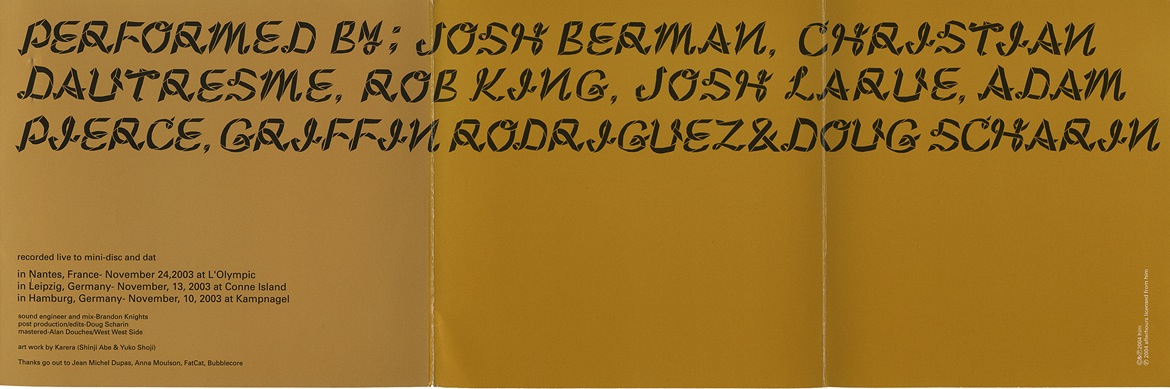 PERFORMED BY: JOSH BERMAN, CHRISTIAN
DAUTRESME, ROB KING, JOSH LARUE, ADAM
PIERCE, GRIFFIN RODRIGUEZ&DOUG SCHARIN
recorded live to mini-disc and dat
in Nantes, France- November 24,2003 at L'Olympic
in Leipzig, Germany- November, 13, 2003 at Conne Island
in Hamburg, Germany- November, 10, 2003 at Kampnagel
sound engineer and mix-Brandon Knights
post production/edits-Doug Scharin
mastered-Alan Douches/West West Side
art work by Karera (Shinji Abe & Yuko Shoji)
Thanks go out to Jean Michel Dupas, Anna Moulson, FatCat, Bubblecore
©&℗2004 him
℗ 2004 afterhours licensed from him